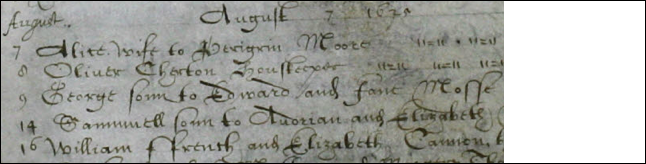 August 7 1630
August..
7 Alice wife to Peregrin Moore
8 Oliver Cherton Houskeeper
9 George sonn to Edward and Jane Mosse
14 Sammuell sonn to Adrian and Elizabeth
16 William ffrench and Elizabeth